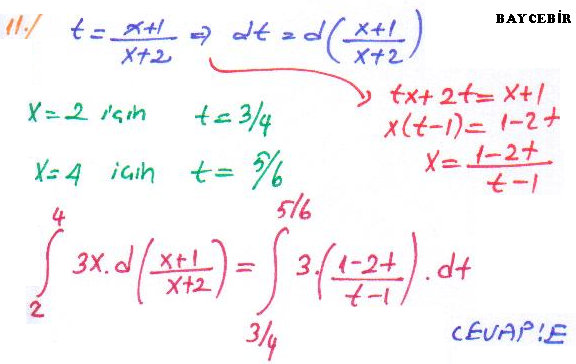 BAYCEBİR
11./ t = x+1/x+2 ⇒ dt = d(x+1/x+2)
tx+2t = x+1
x(t-1) = 1-2t
x = 1-2t/t-1
x=2 için t=3/4
x=4 için t=5/6
∫₂⁴ 3x.d(x+1/x+2) = ∫_{3/4}^{5/6} 3.(1-2t/t-1).dt
CEVAP:E